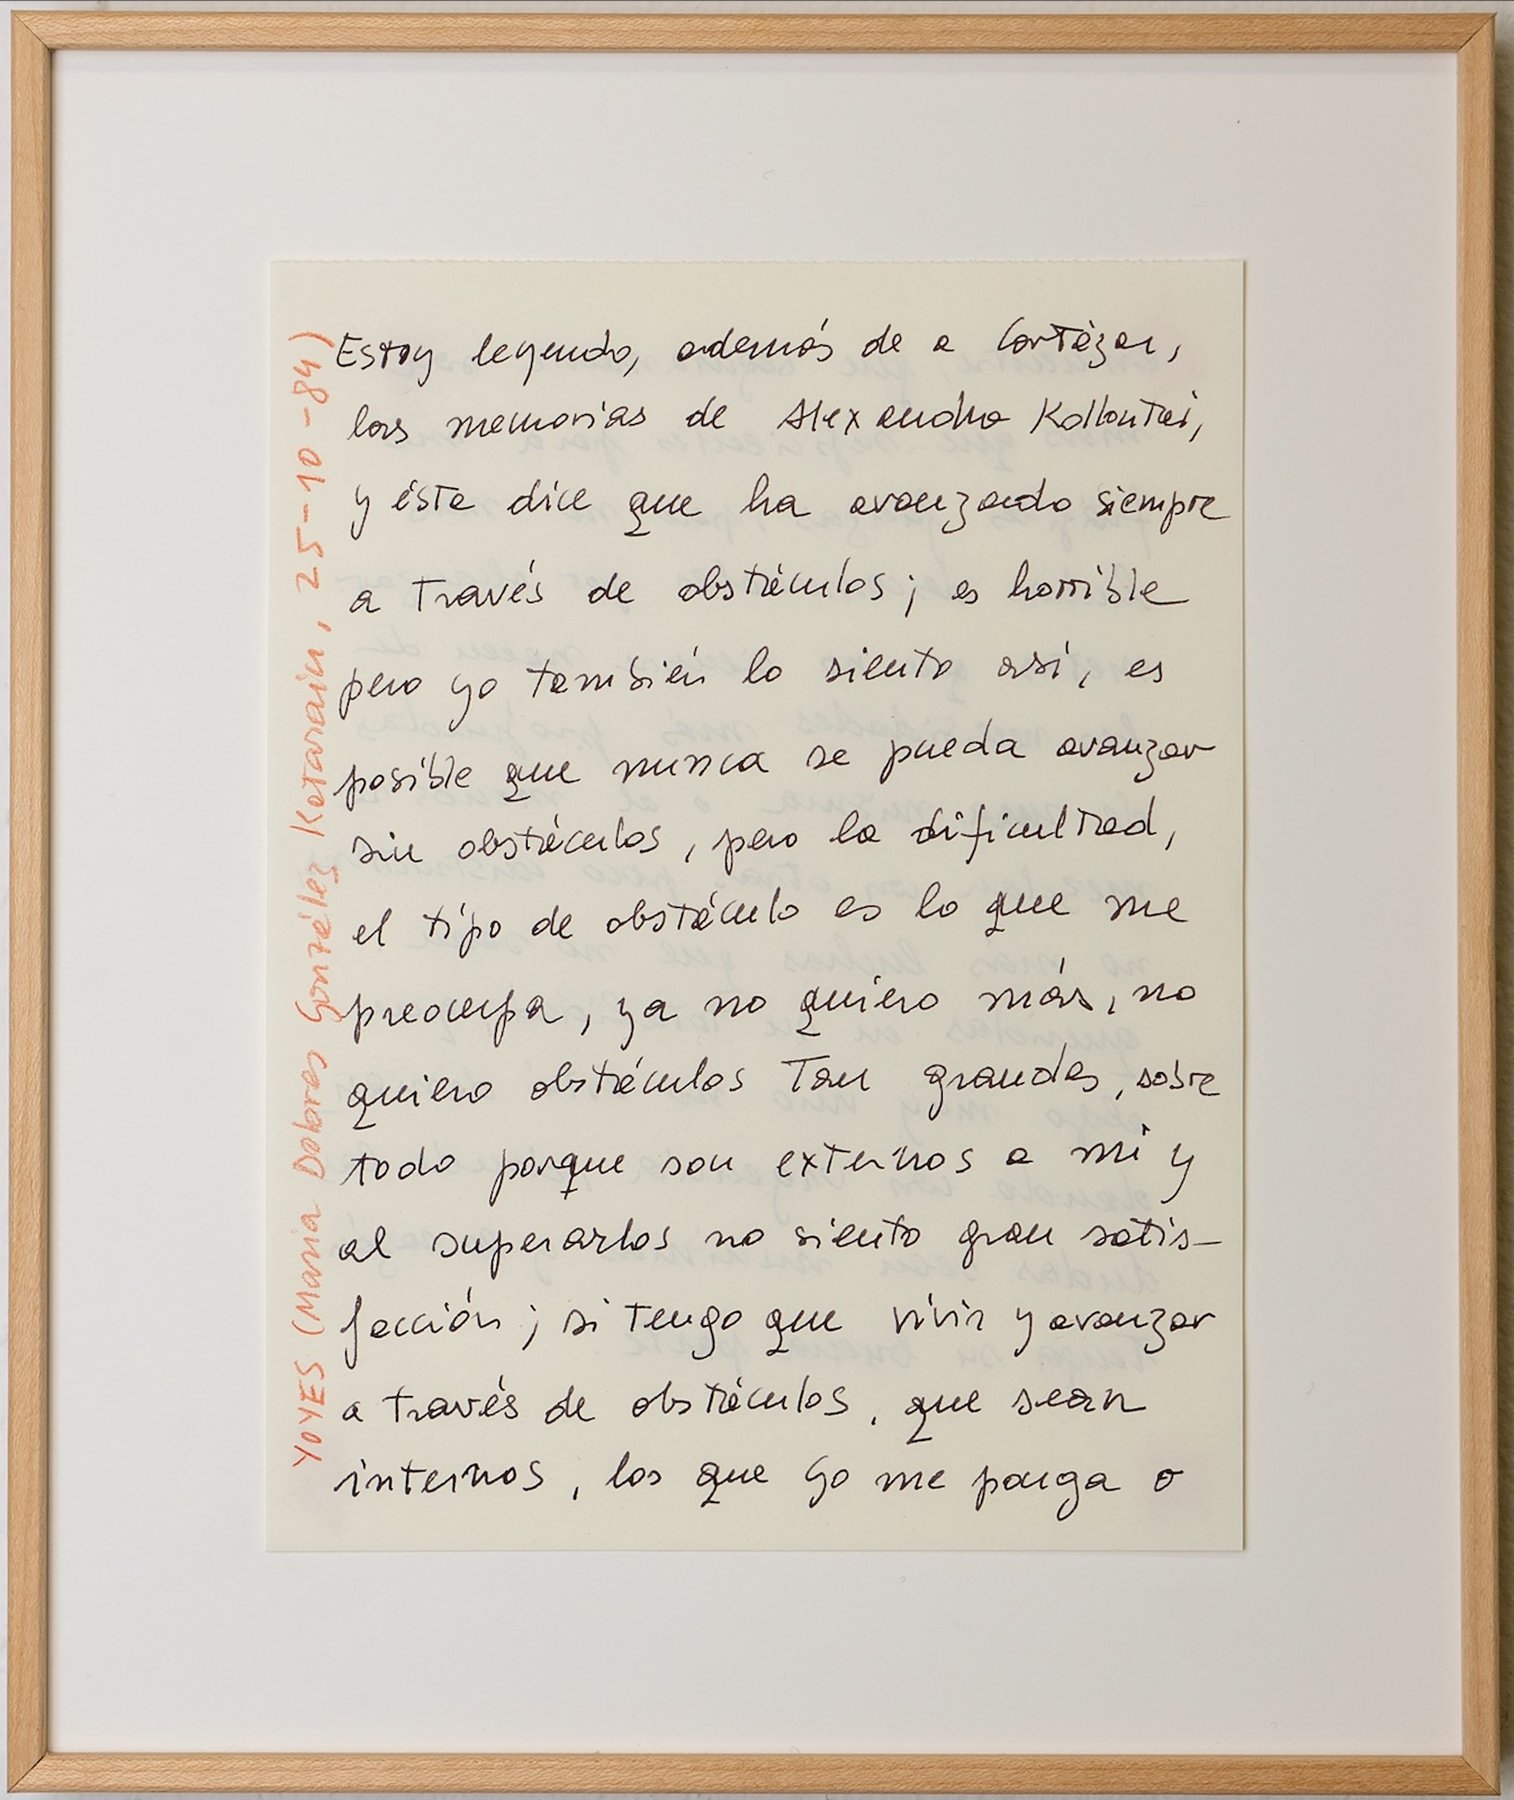 Estoy leyendo, además de a Cortázar,
las memorias de Alexandra Kollontai,
y ésta dice que ha avanzado siempre
a través de obstáculos; es horrible
pero yo también lo siento así, es
posible que nunca se pueda avanzar
sin obstáculos, pero la dificultad,
el tipo de obstáculo es lo que me
preocupa, ya no quiero más, no
quiero obstáculos tan grandes, sobre
todo porque son externos a mí y
al superarlos no siento gran satis-
facción; si tengo que vivir y avanzar
a través de obstáculos, que sean
internos, los que yo me ponga o
YOYES (Maria Dolores González Katarain, 25-10-84)